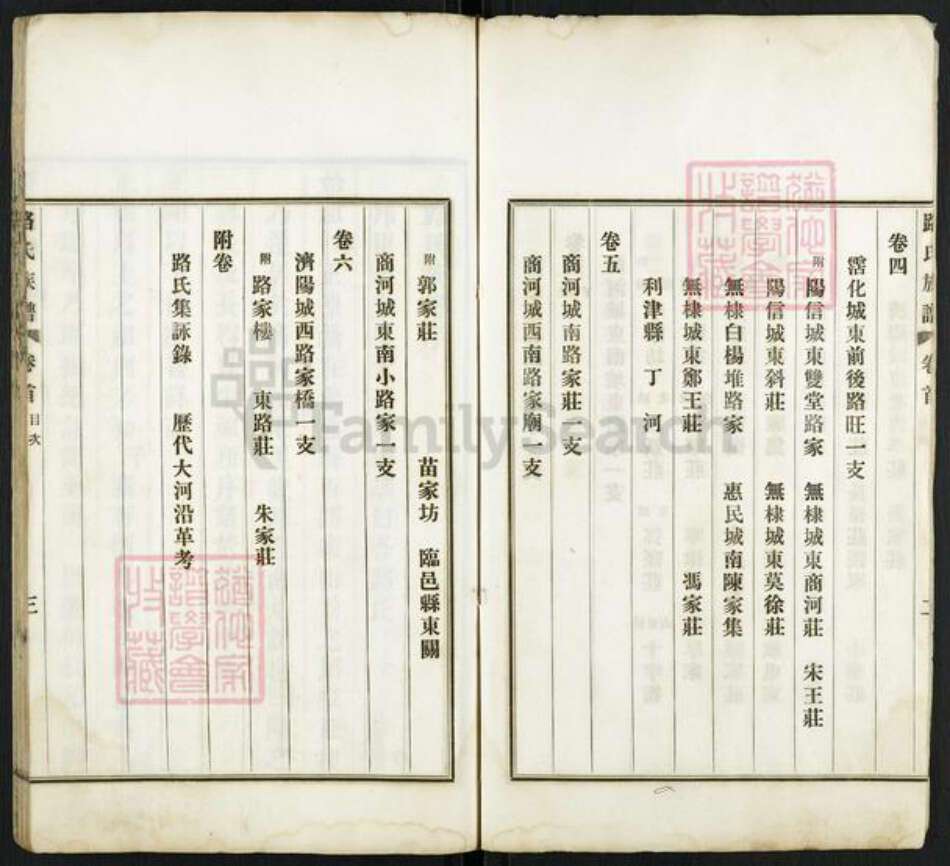 路氏族譜 卷首 二
卷四
霑化城東前後路旺一支
附 陽信城東雙堂路家 無棣城東商河莊 宋王莊
陽信城東斜莊 無棣城東莫徐莊
無棣白楊堆路家 惠民城南陳家集
無棣城東鄭王莊 馮家莊
利津縣 丁 河
卷五
商河城南路家莊一支
商河城西南路家廟一支
附 郭家莊 苗家坊 臨邑縣東關
商河城東南小路家一支
卷六
濟陽城西路家橋一支
附 路家樓 東路莊 朱家莊
附卷
路氏集詠錄 歷代大河沿革考
路氏族譜 卷首 目次 三
FamilySearch